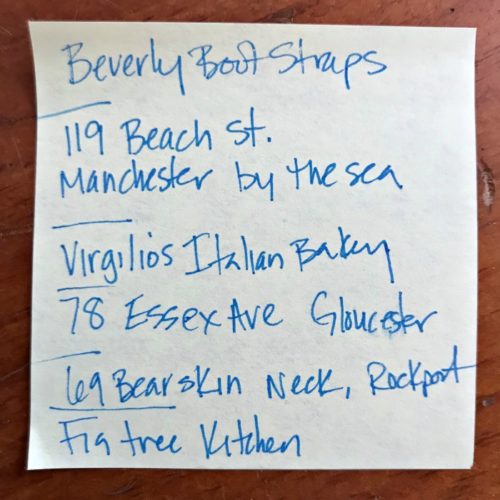 Beverly Boot Straps
119 Beach St.
Manchester by the sea
Virgilios Italian Bakery
78 Essex Ave Gloucester
69 Bearskin Neck, Rockport
Fig tree Kitchen